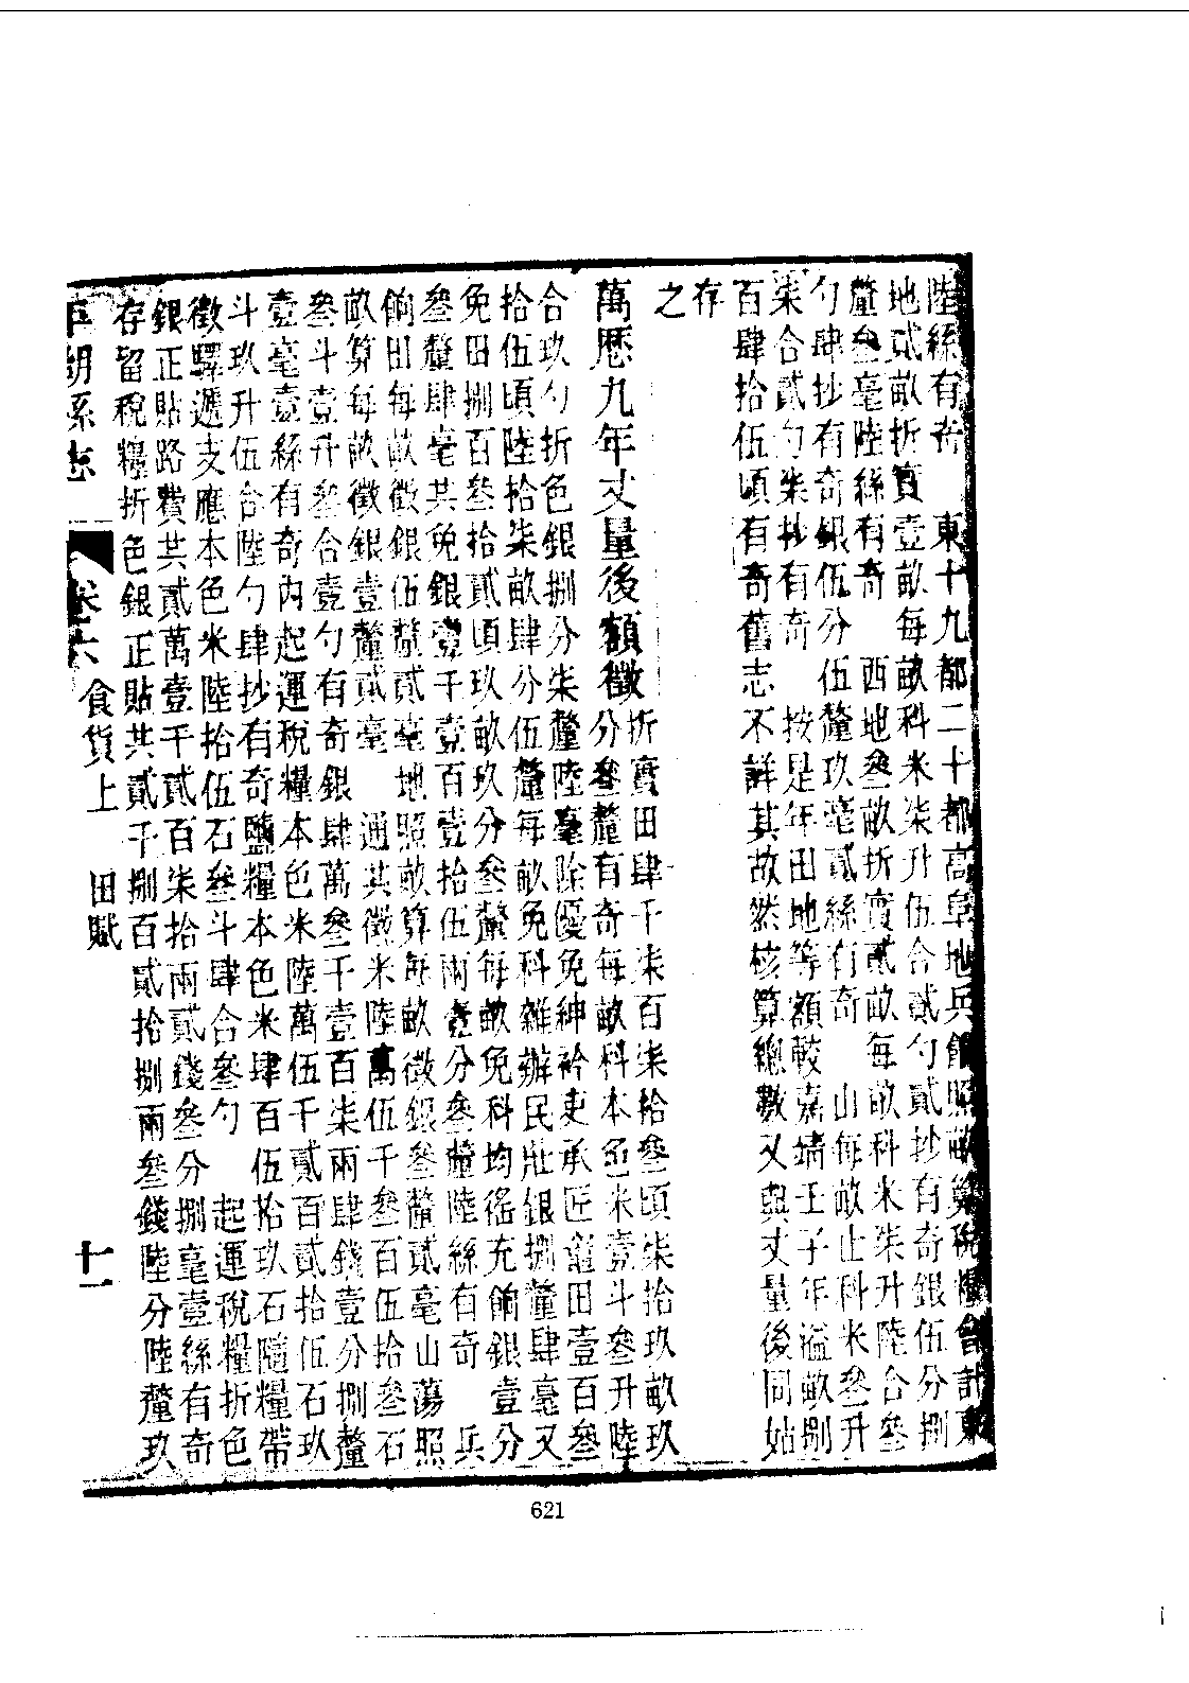 陸絲有奇　東十九都二十都高阜地兵餉照畝算稅糧合計東
地貳畝折實壹畝每畝科米柒升伍合貳勺貳抄有奇銀伍分捌
釐叁毫陸絲有奇　西地叁畝折實貳畝每畝科米柒升陸合叁
勺肆抄有奇銀伍分伍釐玖毫貳絲有奇　山每畝止科米叁升
柒合貳勺柒抄有奇　按是年田地等額較嘉靖壬子年溢畝捌
百肆拾伍頃有奇舊志不詳其故然核算總數又與丈量後同姑
存
之
萬歷九年丈量後額徵
折實田肆千柒百柒拾叁頃柒拾玖畝玖
分叁釐有奇每畝科本色米壹斗叁升陸
合玖勺折色銀捌分柒釐陸毫除優免紳衿吏承匠竈田壹百叁
拾伍頃陸拾柒畝肆分伍釐每畝免科雜辦民壯銀捌釐肆毫又
免田捌百叁拾貳頃玖畝玖分叁釐每畝免科均徭充餉銀壹分
叁釐肆毫共免銀壹千壹百壹拾伍兩壹分叁釐陸絲有奇　兵
餉田每畝徵銀伍釐貳毫　地照畝算每畝徵銀叁釐貳毫山蕩照
畝算每畝徵銀壹釐貳毫　通共徵米陸萬伍千叁百伍拾叁石
叁斗壹升叁合壹勺有奇銀肆萬叁千壹百柒兩肆錢壹分捌釐
壹毫壹絲有奇內起運稅糧本色米陸萬伍千貳百貳拾伍石玖
斗玖升伍合陸勺肆抄有奇鹽糧本色米肆百伍拾玖石隨糧帶
徵驛遞支應本色米陸拾伍石叁斗肆合叁勺　起運稅糧折色
銀正貼路費共貳萬壹千貳百柒拾兩貳錢叁分捌毫壹絲有奇
存留稅糧折色銀正貼共貳千捌百貳拾捌兩叁錢陸分陸釐玖
平湖縣志　卷六　食貨上　田賦　十一
621